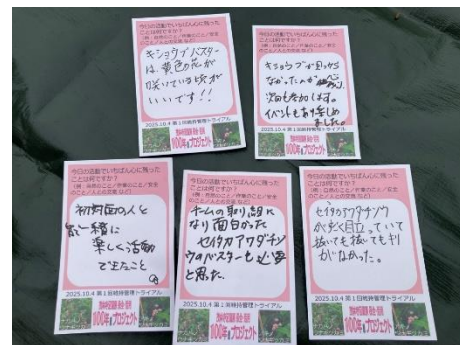 今日の活動でいちばん心に残った
ことは何ですか?
(例:自然のこと/作業のこと/安全
のこと/人との交流 など)
キショウブバスター
は、黄色の花が
咲いている頃が
いいです!!
2025.10.4 第1回維持管理トライアル
100年プロジェクト
今日の活動でいちばん心に残った
ことは何ですか?
(例:自然のこと/作業のこと/安全
のこと/人との交流 など)
キショウブが見つから
なかったのが
次回も参加します。
イベントもお楽しめ
ました。
2025.10.4 第1回維持管理トライアル
100年プロジェクト
今日の活動でいちばん心に残った
ことは何ですか?
(例:自然のこと/作業のこと/安全
のこと/人との交流 など)
初対面の人と
一緒に
楽しく活動
できたこと
2025.10.4 第1回維持管理トライアル
100年プロジェクト
今日の活動でいちばん心に残った
ことは何ですか?
(例:自然のこと/作業のこと/安全
のこと/人との交流 など)
チームの取り合い
になり面白かった
セイタカアワダチソ
ウのバスターも必要
と思った。
2025.10.4 第1回維持管理トライアル
100年プロジェクト
今日の活動でいちばん心に残った
ことは何ですか?
(例:自然のこと/作業のこと/安全
のこと/人との交流 など)
セイタカアワダチソウ
が多く目立っていて
抜いても抜いてもキリ
がなかった。
2025.10.4 第1回維持管理トライアル
100年プロジェクト